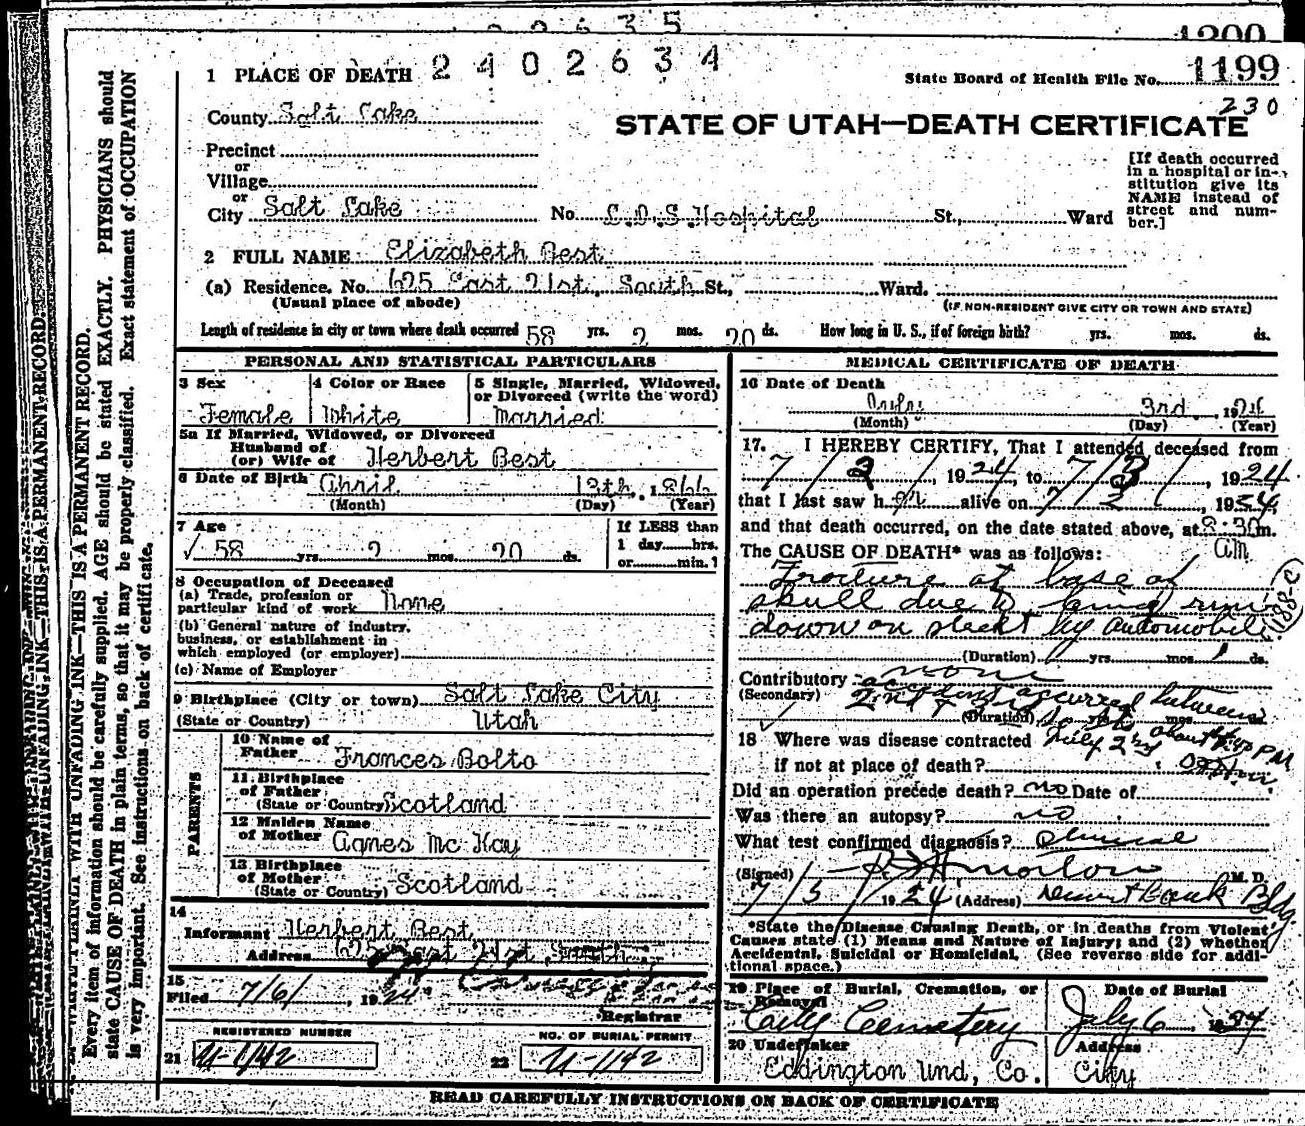 1200
2402634
1199
State Board of Health File No.
230
1 PLACE OF DEATH
County Salt Lake
STATE OF UTAH—DEATH CERTIFICATE
Precinct
or
Village
or
City Salt Lake No. L.D.S Hospital St., Ward
[If death occurred
in a hospital or in-
stitution give its
NAME instead of
street and num-
ber.]
2 FULL NAME Elizabeth Best
(a) Residence. No. 675 East 21st. South St., Ward.
(Usual place of abode)
(IF NON-RESIDENT GIVE CITY OR TOWN AND STATE)
Length of residence in city or town where death occurred 58 yrs. 2 mos. 20 ds. How long in U. S., if of foreign birth? yrs. mos. ds.
PERSONAL AND STATISTICAL PARTICULARS
3 Sex
Female
4 Color or Race
White
5 Single, Married, Widowed,
or Divorced (write the word)
Married
5a If Married, Widowed, or Divorced
Husband of
(or) Wife of Herbert Best
6 Date of Birth April 13th, 1866
(Month) (Day) (Year)
7 Age
58 yrs. 2 mos. 20 ds.
If LESS than
1 day......hrs.
or......min.
8 Occupation of Deceased
(a) Trade, profession or
particular kind of work None
(b) General nature of industry,
business, or establishment in
which employed (or employer)
(c) Name of Employer
9 Birthplace (City or town) Salt Lake City
(State or Country) Utah
PARENTS
10 Name of
Father Frances Bolto
11 Birthplace
of Father
(State or Country) Scotland
12 Maiden Name
of Mother Agnes Mc Kay
13 Birthplace
of Mother
(State or Country) Scotland
14
Informant Herbert Best
Address 675 East 21st South
15
Filed 7/6/, 1924
Registrar
REGISTERED NUMBER
21 U-1142
NO. OF BURIAL PERMIT
22 U-1142
MEDICAL CERTIFICATE OF DEATH
16 Date of Death
July 3rd, 1924
(Month) (Day) (Year)
17. I HEREBY CERTIFY, That I attended deceased from
7/2/, 1924, to 7/3/, 1924
that I last saw her alive on 7/2/, 1924,
and that death occurred, on the date stated above, at 2:30 m.
am
The CAUSE OF DEATH* was as follows:
Fracture at base of
skull due to being run
down on street by automobile
188-c
(Duration) yrs. mos. 1 ds.
Contributory none
(Secondary) 2nd & 3rd occurred between
(Duration) yrs. mos. ds.
18 Where was disease contracted July 2nd about PM
if not at place of death?
Did an operation precede death? no Date of
Was there an autopsy? no
What test confirmed diagnosis? Clinical
(Signed) Morton M. D.
7/5/ 1924 (Address) Deseret Bank Bldg.
*State the Disease Causing Death, or in deaths from Violent
Causes state (1) Means and Nature of Injury; and (2) whether
Accidental, Suicidal or Homicidal. (See reverse side for addi-
tional space.)
19 Place of Burial, Cremation, or
Removal
City Cemetery
Date of Burial
July 6, 1924
20 Undertaker
Eddington Und, Co.
Address
City
READ CAREFULLY INSTRUCTIONS ON BACK OF CERTIFICATE
WITH UNFADING INK—THIS IS A PERMANENT RECORD.
Every item of information should be carefully supplied. AGE should be stated EXACTLY. PHYSICIANS should
state CAUSE OF DEATH in plain terms, so that it may be properly classified. Exact statement of OCCUPATION
is very important. See instructions on back of certificate.